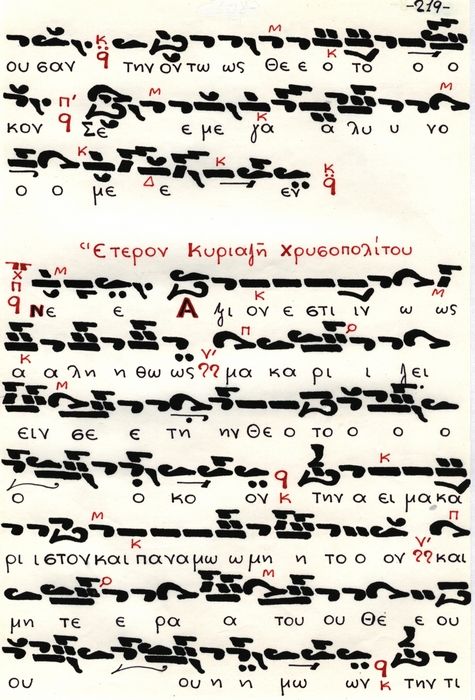 -219-
ου σαν την όν τω ως Θε ε ο το ο ο
κον Σε ε με γα α λυ υ νο
ο ο με ε εν
Έτερον Κυριαζή Χρυσοπολίτου
Νε ε Α ξι ον ε στι ιν ω ως
α α λη η θω ως μα κα ρι ι ζει
ειν σε ε τη ην Θε ο το ο ο ο
ο ο κο ον την α ει μα κα
ρι ι στον και πα να μω ω μη η το ο ον και
μη τε ε ρα α του ου Θε ε ου
ου ου η η μω ων την τι